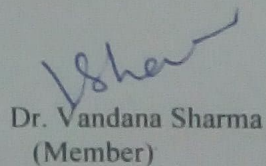 Dr. Vandana Sharma
(Member)